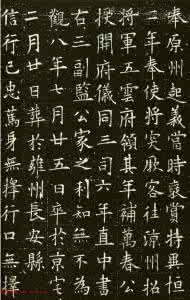 奉原州起義當時褒賞特異恒
二年奉使將突厥客往涼州招
將軍五雲府領其年補萬春公
授開府儀同三司六年直中書
右三副監公家之利知無不為
觀八年七月廿五日卒於京宅
二月廿日葬於雍州長安縣
信行己忠篤身無擇行口無擇